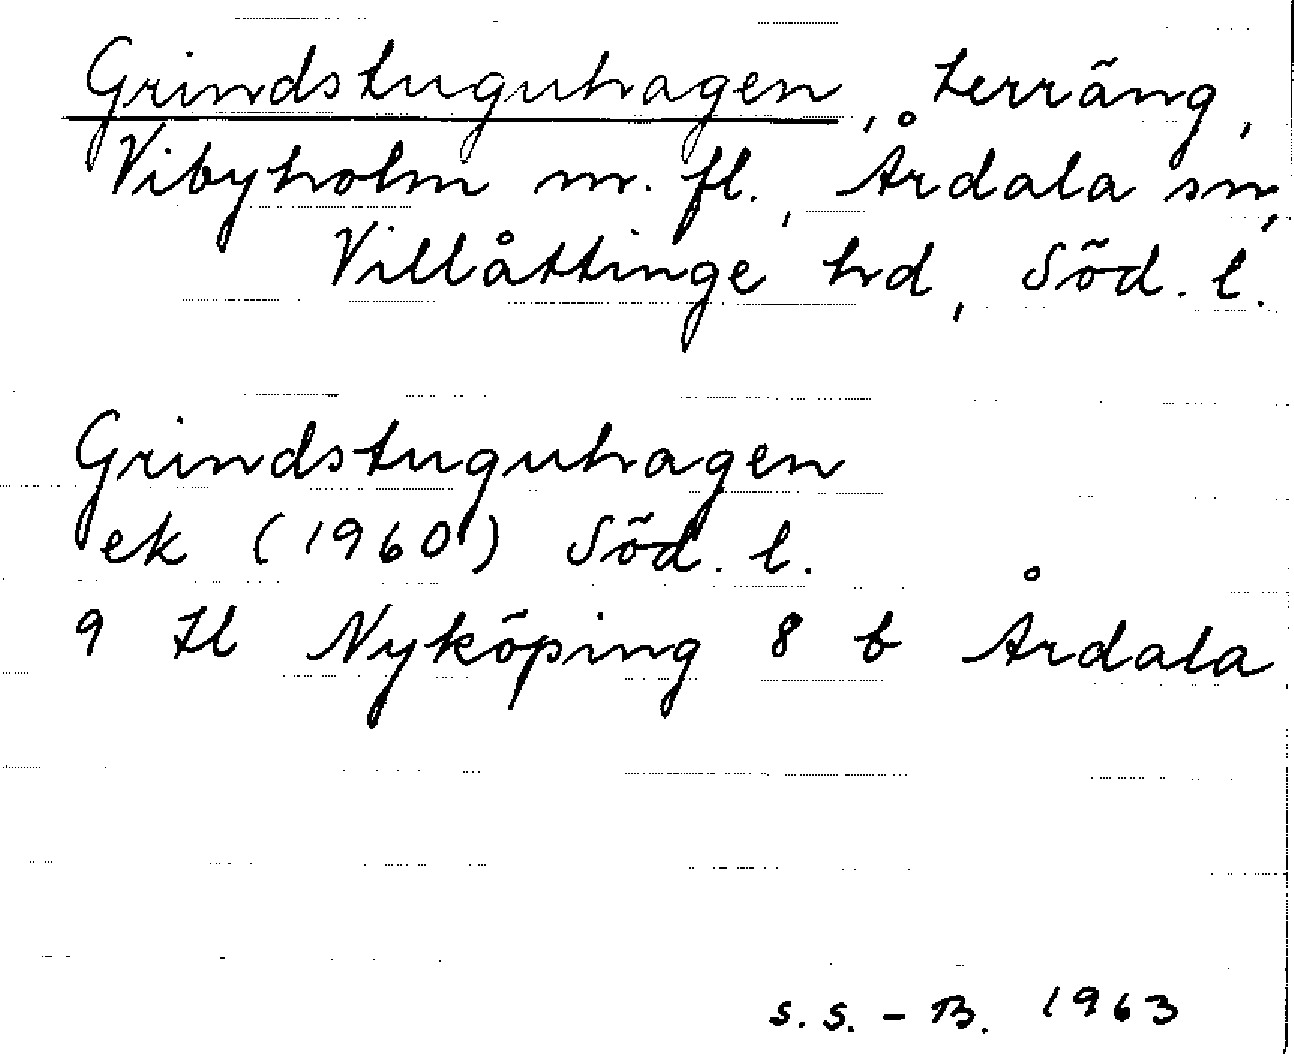 Grindstuguhagen, terräng,
Vibyholm m. fl., Årdala sn,
Villåttinge hd, Söd. l.
Grindstuguhagen
ek (1960) Söd. l.
9 H Nyköping 8 b Årdala
S. S. - B. 1963